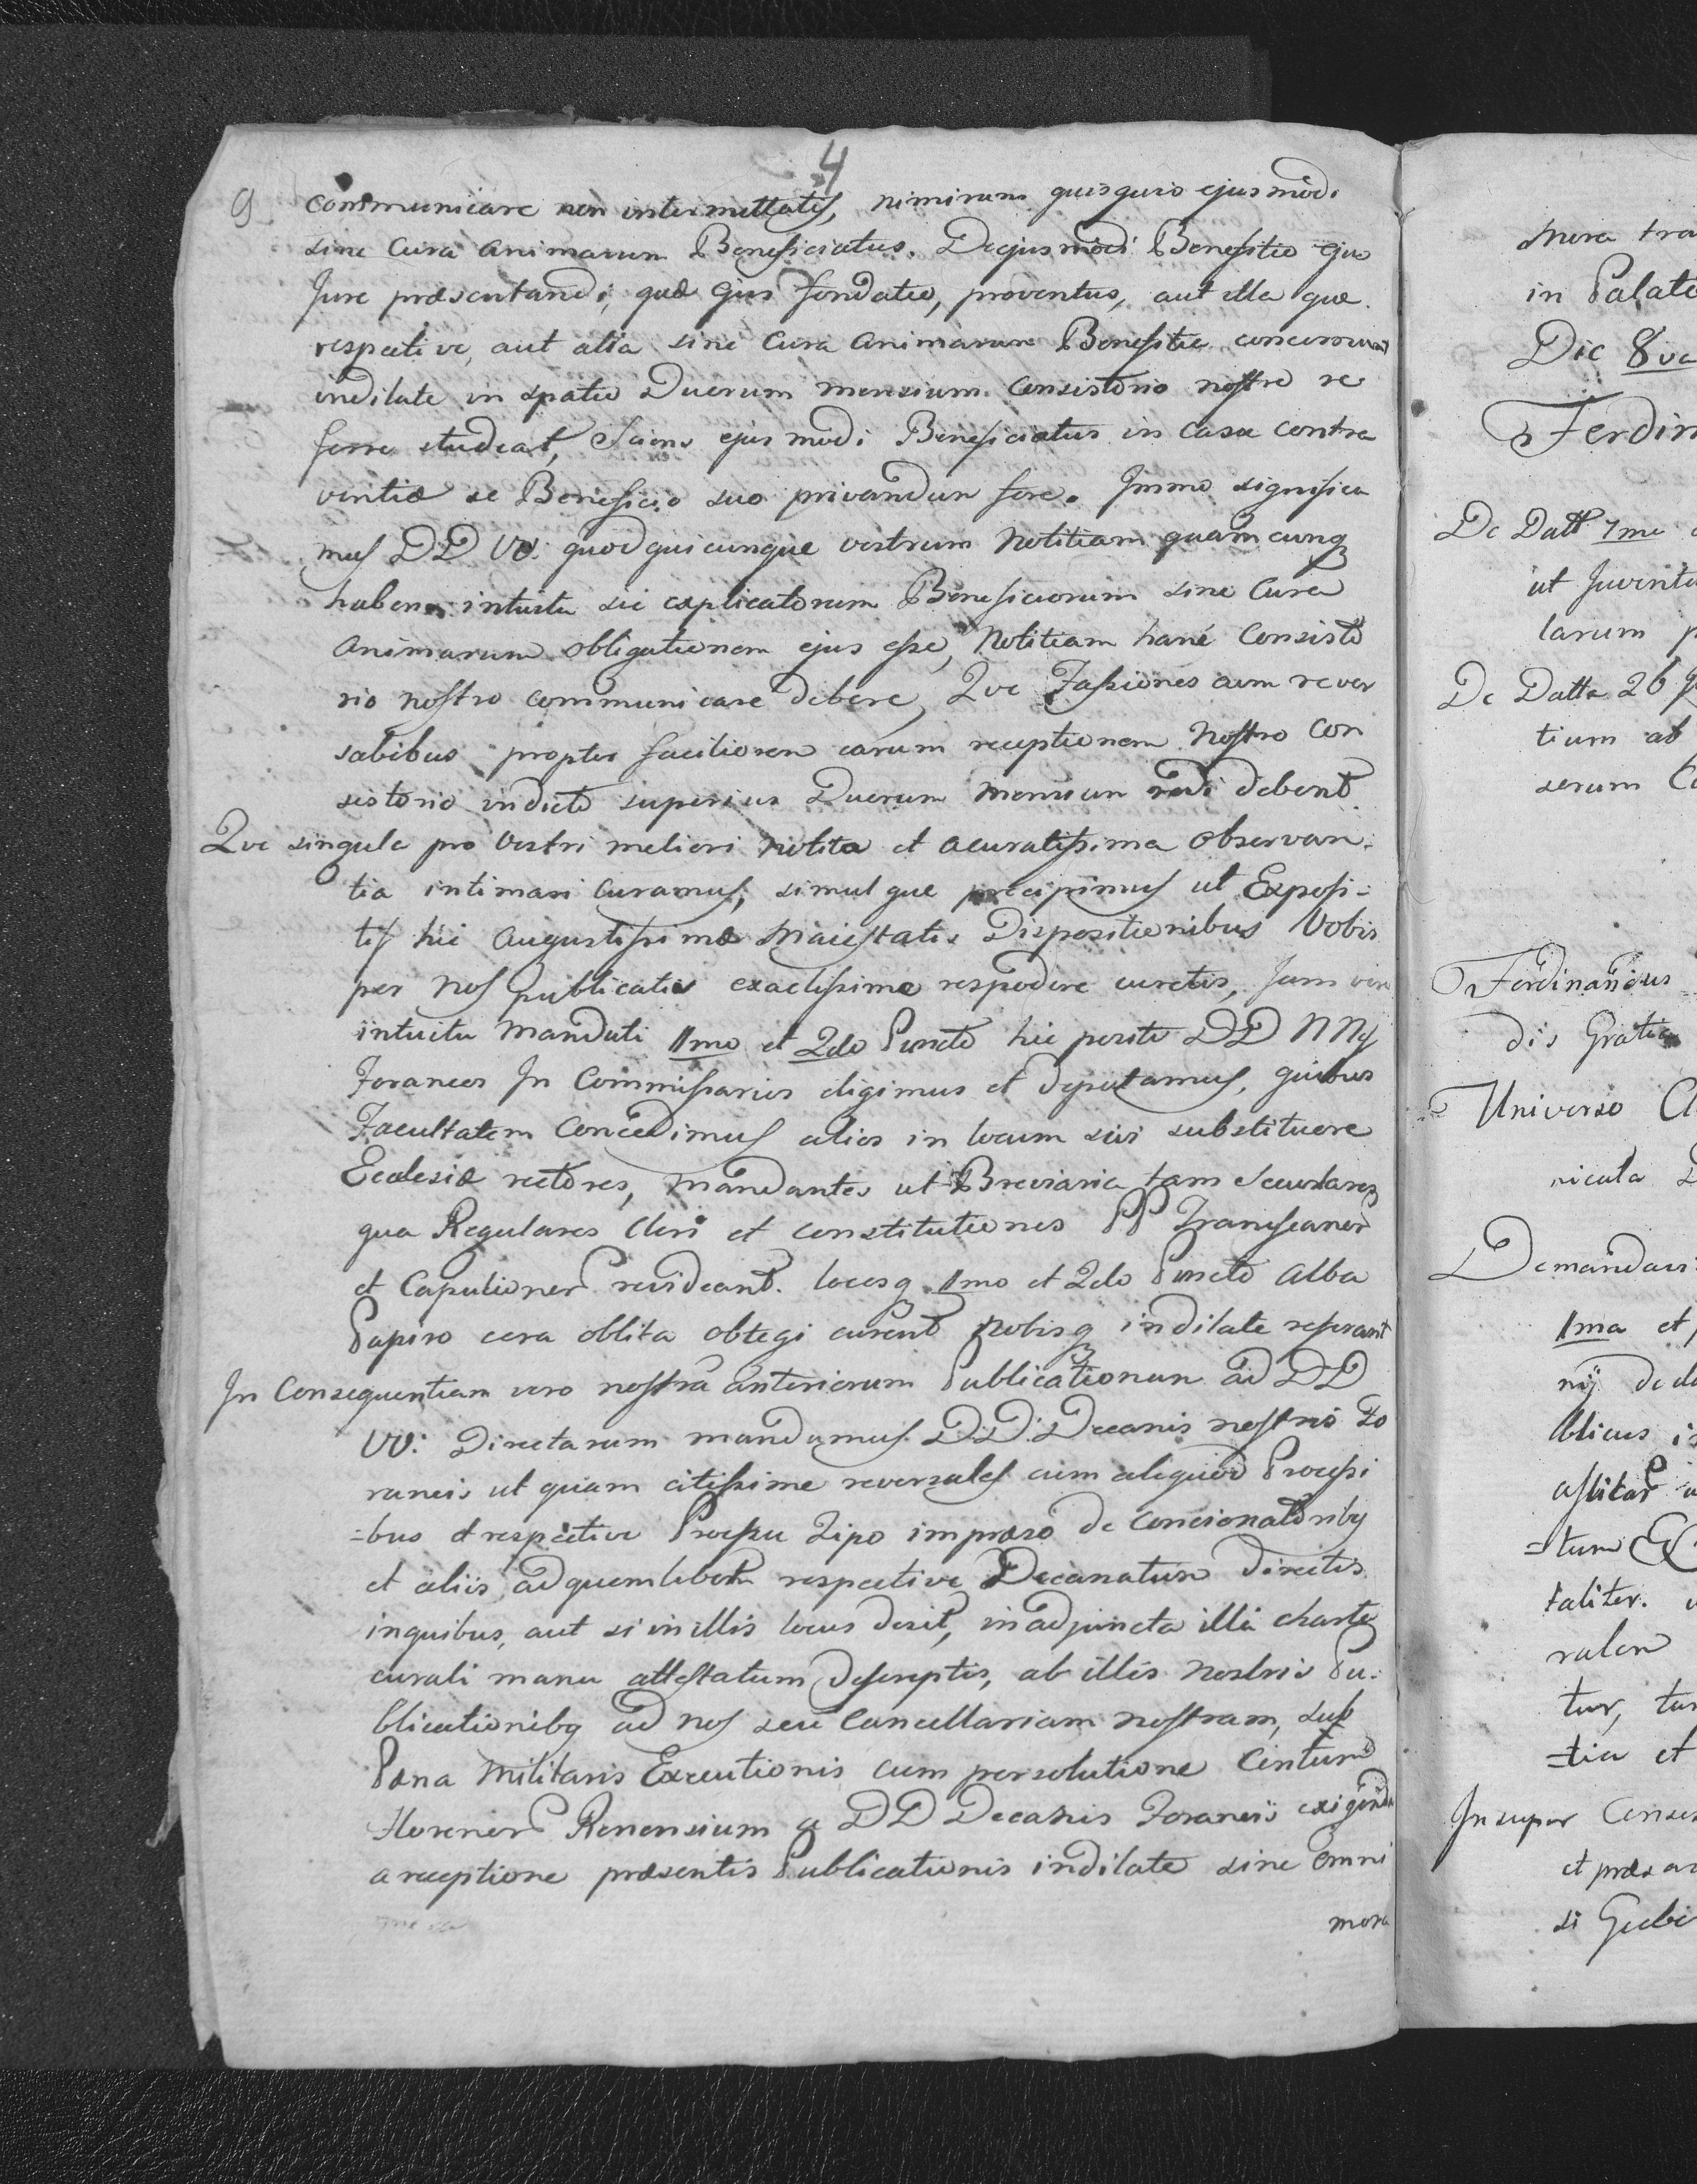 4
9 communicare non intermittatis, nimirum quisquis ejusmodi
sine Cura animarum Beneficiatus. De ejusmodi Benefitio ejus
Jure præsentandi, quæ Ejus fondatio, proventus, aut illa que
respective, aut alia sine Cura animarum Benefitia concernunt
indilate in spatio Duorum mensium Consistorio nostro re
ferre studeat, Sciens ejus modi Beneficiatus in Casu contra
ventiæ se Beneficio suo privandum fore. Immo significa
mus DD VV: quod quicunque vestrum Notitiam quamcunq
habens intuitu sic explicatorum Beneficiorum sine Cura
Animarum obligationem ejus esse, Notitiam hanc Consisto
rio nostro communicare debere, Que Fassiones cum rever
salibus propter faciliorem earum receptionem Nostro Con
sistorio indicto superius Duorum Mensium redi debent.
Que singula pro Vestri meliori notitia et acuratissima observan:
tia intimari curamus, simul que precipimus ut Exposi=
tis hic Augustissimæ Maiestatis Dispositionibus Vobis
per Nos publicatis exactissime respodere curetis, Jam vero
intuitu Mandati 1mo et 2do Puncto hic positi DD NNos
Foraneos In Commissarios eligimus et deputamus, quibus
Facultatem Concedimus alios in locum sui substituere
Ecclesiæ rectores, Mandantes ut Breviaria tam Seculares
qua Regulares Cleri et constitutiones PP Franciscanor
et Capucionor revideant. locosq 1mo et 2do Puncto Alba
Papiro cera oblita obtegi curent Nobisq indilate referant
In Consequentiam vero nostra anteriorum Publicationum ad DD
VV: Directarum mandamus DD: Decanis nostris Fo
raneis ut quam citissime reversales cum aliquod Processi
=bus et respective Processu Tipo impræso de Concionatoriby
et aliis ad quemlibet respective Decanatum directis
inquibus, aut si in illis locus desit, in adjuncta illa charta
curali manu attestatum descriptis, ab illis Nostris Pu:
blicationiby ad nos seu Cancellariam nostram, sub
Pæna Militaris Executionis cum persolutione Centum
Florenor Renensium a DD Decanis Foraneis exigenda
a receptione præsentis Publicationis indilate sine omni
mora
Mora tra
in Palati
Die 8va
Ferdin
De Datt 1ma
ut Juventu
larum p
De Datta 26
tium ab
serum
Ferdinandus
di s Gratia
Universo
nicula
Demandavi
1ma et
nij de da
blicus i
=tum
taliter.
ralem
tur, tan
=tia et
Insuper Conse
et præs
si Gube